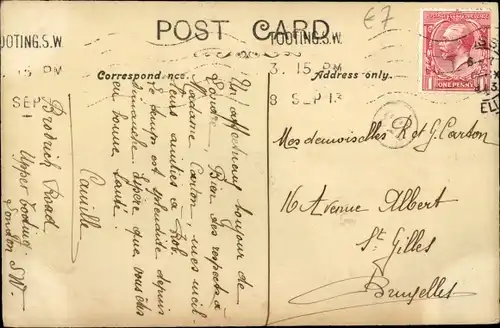 €7
POST CARD
TOOTING.S.W.
TOOTING.S.W.
3. 15 PM
8 SEP 13
15 PM
SEP
ONE PENNY
Correspondence.
Address only.
Un affectueux bonjour de
Londres. Bien des respects à
Madame Carton, mes meil-
leurs amitiés à Rob.
Le temps est splendide depuis
dimanche. J'espère que vous êtes
en bonne santé.
Camille
Brodrick Road
Upper Tooting.
London S.W.
Mesdemoiselles R et G. Carton
16 Avenue Albert
St Gilles
Bruxelles